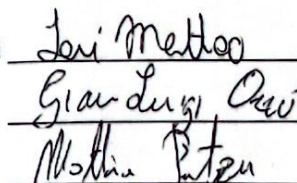 Loi Matteo
Gian Luigi
Mattia Putzu